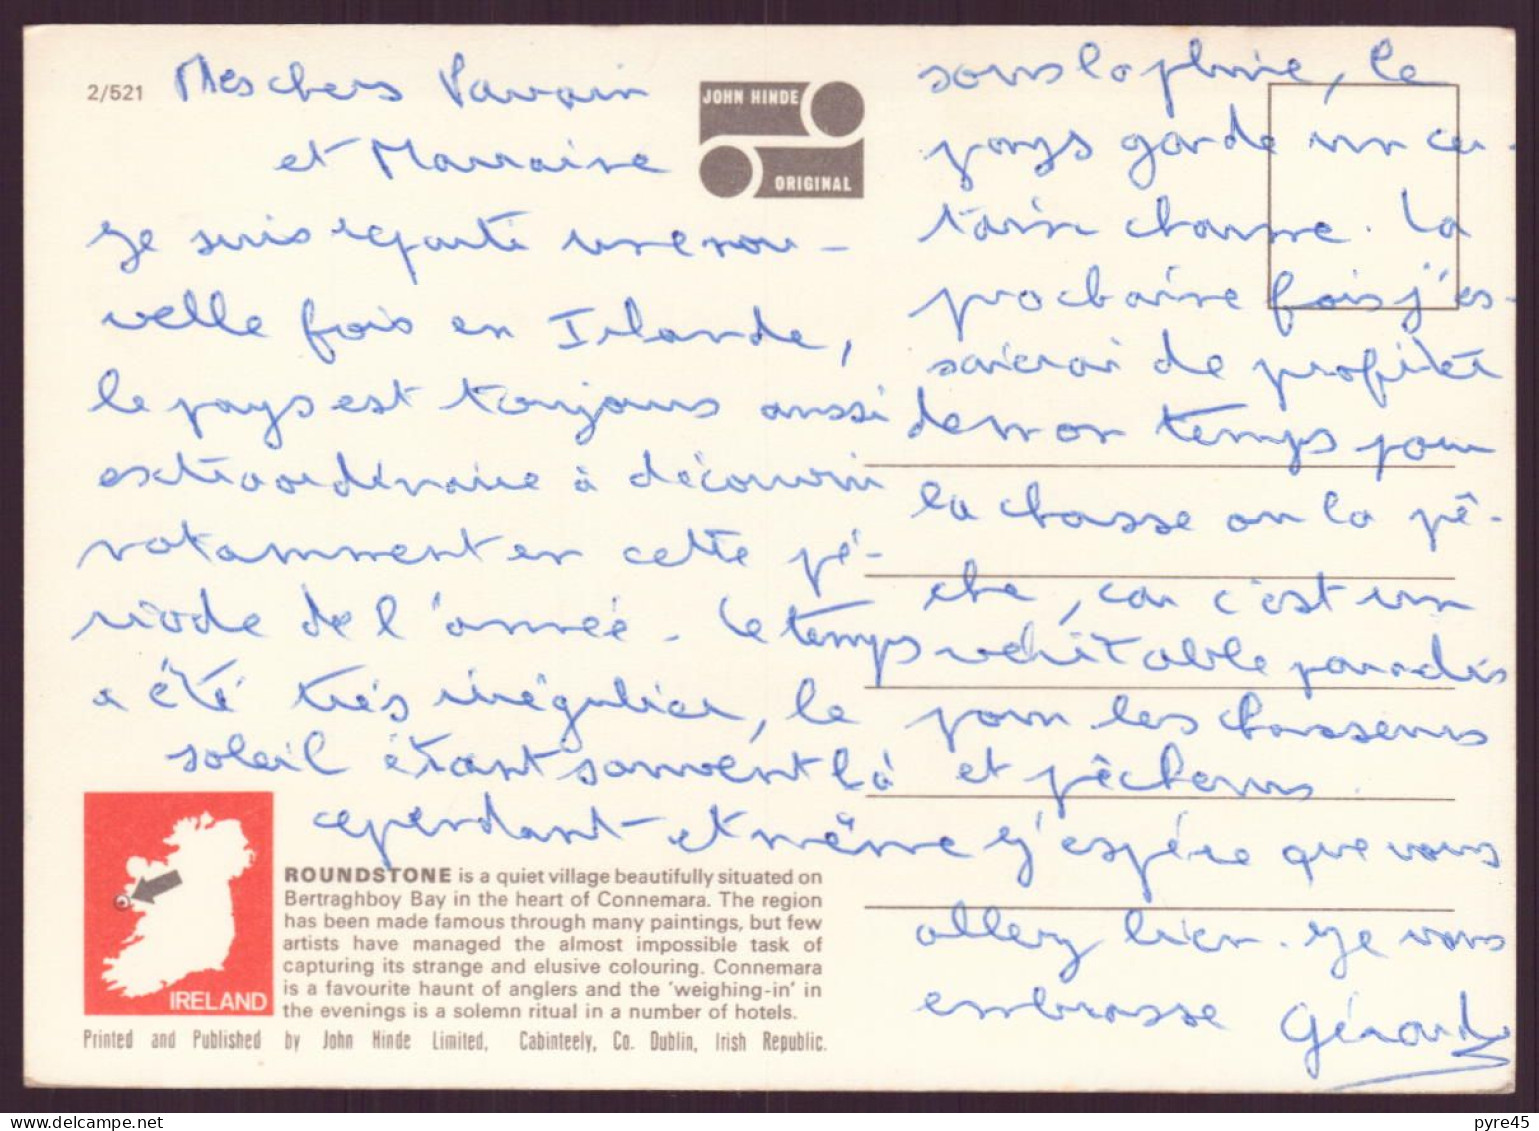 2/521
Mes chers Parrain
et Marraine
Je suis reparti une nou-
velle fois en Irlande,
le pays est toujours aussi
extraordinaire à découvrir
notamment en cette pé-
riode de l'année. Le temps
a été très irrégulier, le
soleil étant souvent là
cependant et même
sous la pluie, le
pays garde un cer-
tain charme. La
prochaine fois j'es-
saierai de profiter
de mon temps pour
la chasse ou la pê-
che, car c'est un
véritable paradis
pour les chasseurs
et pêcheurs.
J'espère que vous
allez bien. Je vous
embrasse Gérard
JOHN HINDE
ORIGINAL
IRELAND
ROUNDSTONE is a quiet village beautifully situated on
Bertraghboy Bay in the heart of Connemara. The region
has been made famous through many paintings, but few
artists have managed the almost impossible task of
capturing its strange and elusive colouring. Connemara
is a favourite haunt of anglers and the 'weighing-in' in
the evenings is a solemn ritual in a number of hotels.
Printed and Published by John Hinde Limited, Cabinteely, Co. Dublin, Irish Republic.
delcampe.net
pyre45